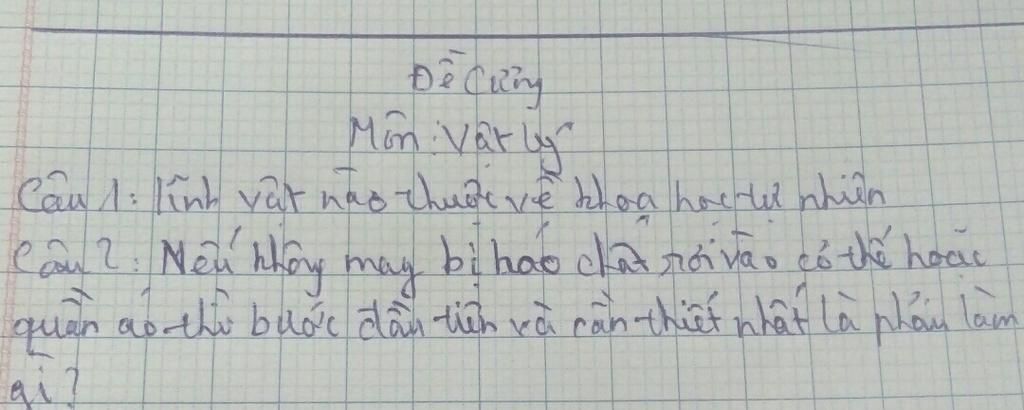 Đề Cương
Môn: Vật lý
Câu 1: lĩnh vật nào thuộc về khoa học tự nhiên
Câu 2: Nếu không may bị hoá chất rơi vào có thể hoặc
quần áo thì bước đầu tiên và cần thiết nhất là phải làm
gì?